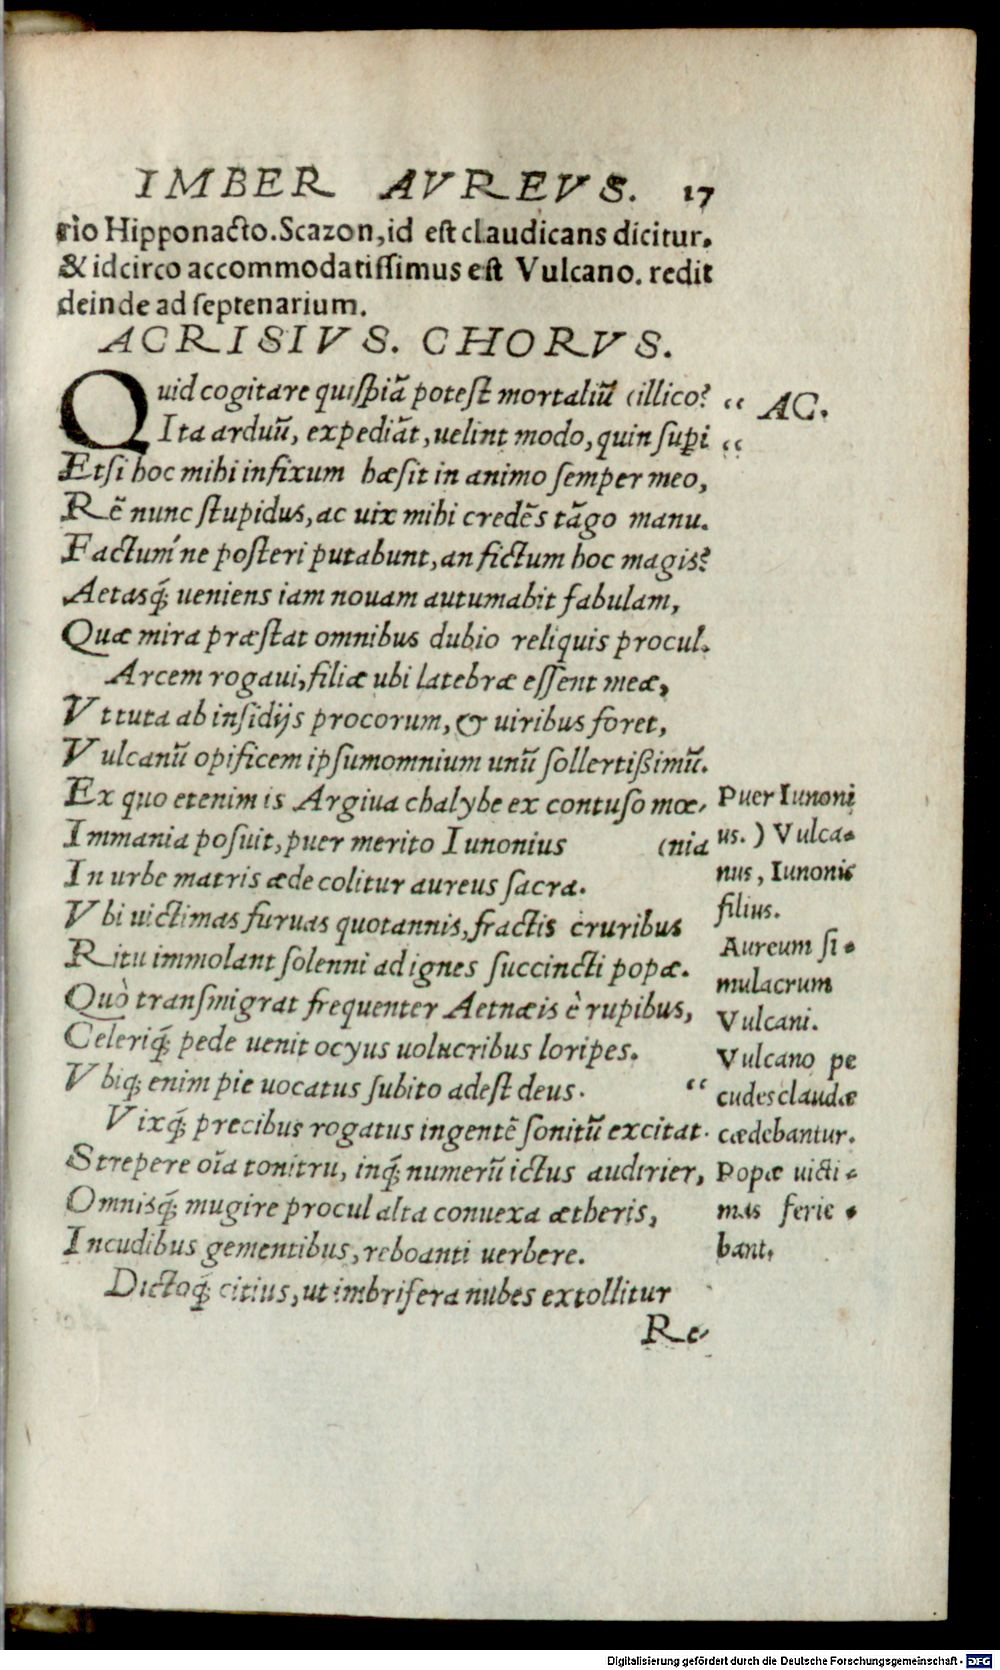 IMBER AVREVS. 17
rio Hipponacto. Scazon, id est claudicans dicitur.
& idcirco accommodatissimus est Vulcano. redit
deinde ad septenarium.
ACRISIVS. CHORVS.
Quid cogitare quispiã potest mortaliũ (illico? “ AC.
Ita arduũ, expediãt, uelint modo, quin supi “
Etsi hoc mihi infixum hæsit in animo semper meo,
Rẽ nunc stupidus, ac uix mihi credẽs tãgo manu.
Factum'ne posteri putabunt, an fictum hoc magis?
Aetasq; ueniens iam nouam autumabit fabulam,
Quæ mira præstat omnibus dubio reliquis procul.
Arcem rogaui, filiæ ubi latebræ essent meæ,
Vt tuta ab insidijs procorum, & uiribus foret,
Vulcanũ opificem ipsum omnium unũ sollertißimũ.
Ex quo etenim is Argiua chalybe ex contuso mœ-
Immania posuit, puer merito Iunonius (nia
In urbe matris æde colitur aureus sacra.
Vbi uictimas furuas quotannis, fractis cruribus
Ritu immolant solenni ad ignes succincti popæ.
Quò transmigrat frequenter Aetnæis è rupibus,
Celeriq; pede uenit ocyus uolucribus loripes.
Vbiq; enim pie uocatus subito adest deus. “
Vixq; precibus rogatus ingentẽ sonitũ excitat.
Strepere oĩa tonitru, inq; numerũ ictus audirier,
Omnisq; mugire procul alta conuexa ætheris,
Incudibus gementibus, reboanti uerbere.
Dictoq; citius, ut imbrifera nubes extollitur
Re-
Puer Iunoni
us.) Vulca-
nus, Iunonis
filius.
Aureum si-
mulacrum
Vulcani.
Vulcano pe
cudes claudæ
cædebantur.
Popæ uicti-
mas ferie-
bant.
Digitalisierung gefördert durch die Deutsche Forschungsgemeinschaft - DFG